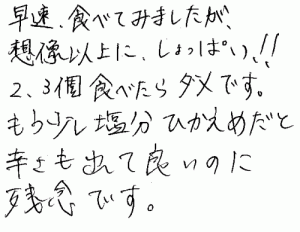 早速、食べてみましたが、
想像以上に、しょっぱい!!
2、3個食べたら ダメです。
もう少し塩分 ひかえめだと
辛さも出て良いのに
残念です。